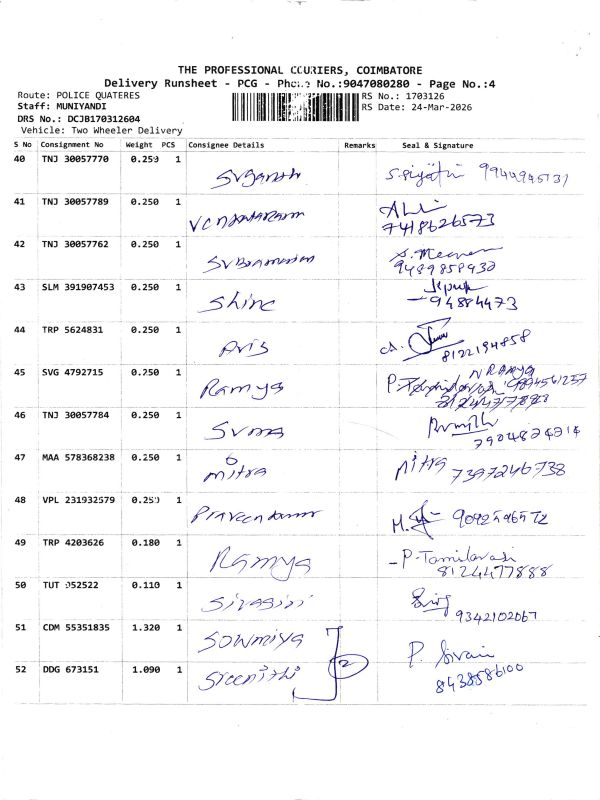 THE PROFESSIONAL COURIERS, COIMBATORE
Delivery Runsheet - PCG - Phone No.:9047080280 - Page No.:4
Route: POLICE QUATERES
RS No.: 1703126
Staff: MUNIYANDI
RS Date: 24-Mar-2026
DRS No.: DCJB170312604
Vehicle: Two Wheeler Delivery
S No Consignment No Weight PCS Consignee Details Remarks Seal & Signature
40 TNJ 30057770 0.250 1
41 TNJ 30057789 0.250 1 7418626573
42 TNJ 30057762 0.250 1 9489858932
43 SLM 391907453 0.250 1 Shine 94884473
44 TRP 5624831 0.250 1 8122194858
45 SVG 4792715 0.250 1 Ramya N RAMYA
46 TNJ 30057784 0.250 1
47 MAA 578368238 0.250 1 mitra Mitra 7397246738
48 VPL 231932579 0.250 1 Praveen kumar
49 TRP 4203626 0.180 1 Ramya P. Tamilarasi
8124477888
50 TUT 952522 0.110 1 9342102067
51 CDM 55351835 1.320 1 Sowmiya 2
52 DDG 673151 1.090 1 Sreenithi 8438586100